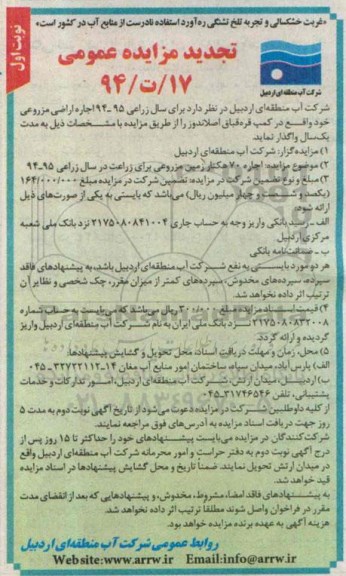 «غربت خشکسالی و تجربه تلخ تشنگی ره‌آورد استفاده نادرست از منابع آب در کشور است»
نوبت اول
تجدید مزایده عمومی
۱۷/ت/۹۴
شرکت آب منطقه‌ای اردبیل
شرکت آب منطقه‌ای اردبیل در نظر دارد برای سال زراعی ۹۵-۹۴ اجاره اراضی مزروعی
خود واقع در کمپ قره‌قباق اصلاندوز را از طریق مزایده با مشخصات ذیل به مدت
یک‌سال واگذار نماید.
۱) مزایده‌گزار: شرکت آب منطقه‌ای اردبیل
۲) موضوع مزایده: اجاره ۷۰ هکتار زمین مزروعی برای زراعت در سال زراعی ۹۵-۹۴
۳) مبلغ و نوع تضمین شرکت در مزایده: تضمین شرکت در مزایده مبلغ ۱۶۴/۰۰۰/۰۰۰
(یکصد و شصت و چهار میلیون ریال) می‌باشد که بایستی به یکی از صورت‌های ذیل
ارائه شود:
الف ـ رسید بانکی واریز وجه به حساب جاری ۲۱۷۵۰۸۰۸۴۱۰۰۴ نزد بانک ملی شعبه
مرکزی اردبیل
ب ـ ضمانت‌نامه بانکی
هر دو مورد بایستی به نفع شرکت آب منطقه‌ای اردبیل باشد، به پیشنهادهای فاقد
سپرده، سپرده‌های مخدوش، سپرده‌های کمتر از میزان مقرر، چک شخصی و نظایر آن
ترتیب اثر داده نخواهد شد.
۴) قیمت اسناد مزایده مبلغ ریال می‌باشد که می‌بایست به حساب شماره
۲۱۷۵۰۸۰۸۳۲۰۰۸ نزد بانک ملی ایران به نام شرکت آب منطقه‌ای اردبیل واریز
گردیده و ارائه گردد.
۵) محل، زمان و مهلت دریافت اسناد، محل تحویل و گشایش پیشنهادها:
الف) پارس‌آباد، میدان سپاه، ساختمان امور منابع آب مغان ۱۴-۳۲۷۲۲۱۱۲-۰۴۵
ب) اردبیل، میدان ارتش، شرکت آب منطقه‌ای اردبیل، امور تدارکات و خدمات
پشتیبانی، تلفن ۳۱۷۴۶۵۴۶-۰۴۵
از کلیه داوطلبین شرکت در مزایده دعوت می‌شود از تاریخ آگهی نوبت دوم به مدت ۵
روز جهت دریافت اسناد مزایده به آدرس‌های فوق مراجعه نمایند.
شرکت‌کنندگان در مزایده می‌بایست پیشنهادهای خود را حداکثر تا ۱۵ روز پس از
درج آگهی نوبت دوم به دفتر حراست و امور محرمانه شرکت آب منطقه‌ای اردبیل واقع
در میدان ارتش تحویل نمایند، ضمناً تاریخ و محل گشایش پیشنهادها در اسناد مزایده
قید خواهد شد.
به پیشنهادهای فاقد امضا، مشروط، مخدوش، و پیشنهادهایی که بعد از انقضای مدت
مقرر در فراخوان واصل شوند مطلقا ترتیب اثر داده نخواهد شد.
هزینه آگهی به عهده برنده مزایده خواهد بود.
روابط عمومی شرکت آب منطقه‌ای اردبیل
Website:www.arrw.ir Email:info@arrw.ir